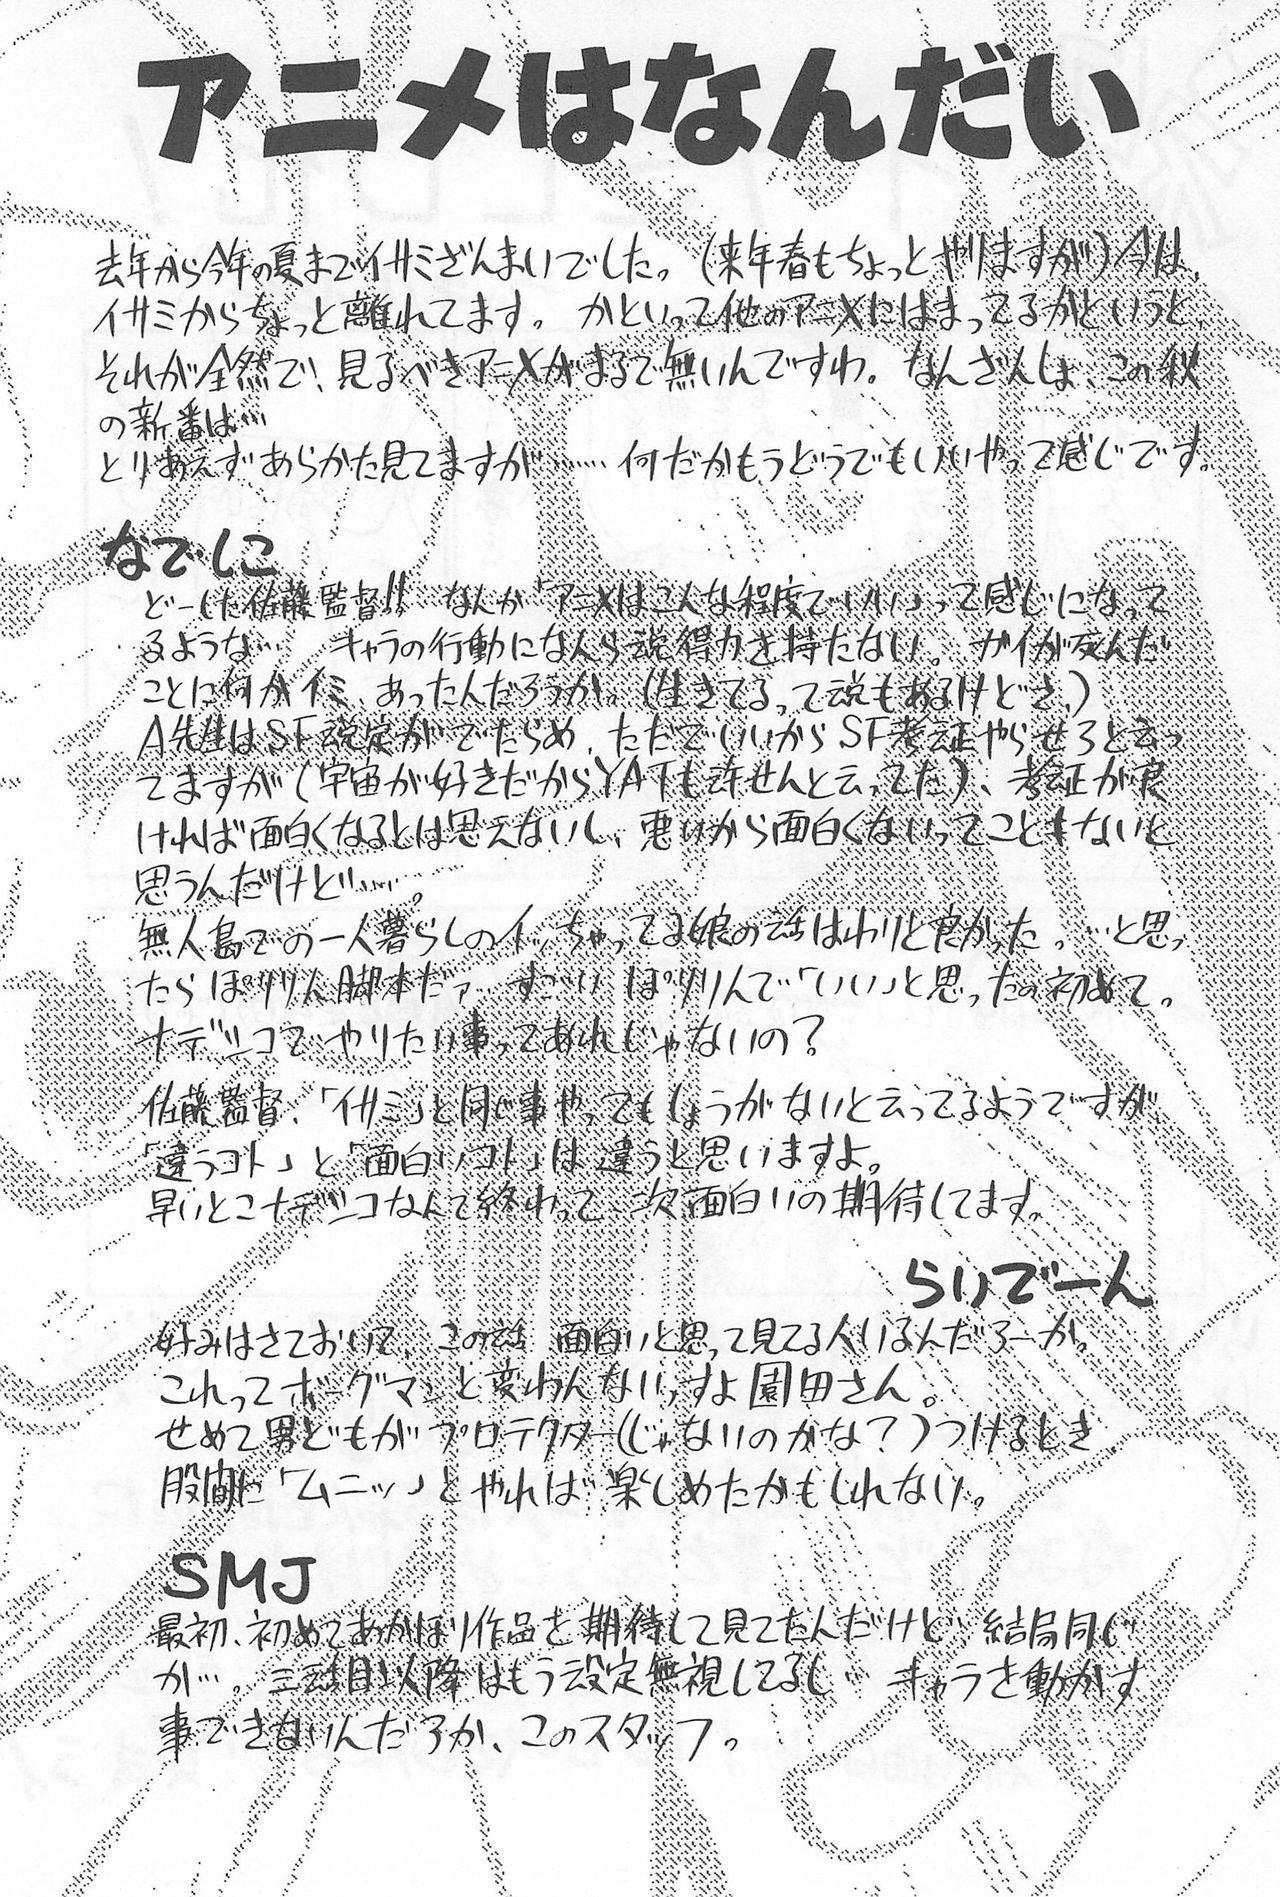 アニメはなんだい
去年から今年の夏までイサミざんまいでした。(来年春もちょっとやりますが)今は、
イサミからちょっと離れてます。かといって他のアニメにはまってるかというと、
それが全然で、見るべきアニメがまるで無いんですわ。なんざんしょ、この秋
の新番は…
とりあえずあらかた見てますが……何だかもうどうでもいいやって感じです。
なでしこ
どーした佐藤監督!! なんか「アニメはこんな程度でいい」って感じになって
るような… キャラの行動になんら説得力を持たない。ガイが死んだ
ことに何かイミ、あったんだろうか。(生きてるって説もあるけどさ、)
A先生はSF設定がでたらめ、ただでいいからSF考証やらせろと云っ
てますが(宇宙が好きだからYATも許せんと云ってた)、考証が良
ければ面白くなるとは思えないし、悪いから面白くないってこともないと
思うんだけど……。
無人島での一人暮らしのイッちゃってる娘の話はわりと良かった。…と思っ
たらぽりりん脚本だァ… すごい ぽりりんで「いい」と思ったの初めて。
ナデシコでやりたい事ってあれじゃないの?
佐藤監督、「イサミ」と同じ事やってもしょうがないと云ってるようですが
「違うコト」と「面白いコト」は違うと思いますよ。
早いとこナデシコなんて終わって、次、面白いの期待してます。
らいでーん
好みはさておいて、この話 面白いと思って見てる人いるんだろーか。
これってボーグマンと変わんないっすよ園田さん。
せめて男どもがプロテクター(じゃないのかな?)つけるとき、
股間に「ムニッ」とやれば楽しめたかもしれない。
SMJ
最初、初めてあかほり作品を期待して見てたんだけど… 結局同じ
か…。三話目以降はもう設定無視してるし… キャラを動かす
事できないんだろか、このスタッフ。